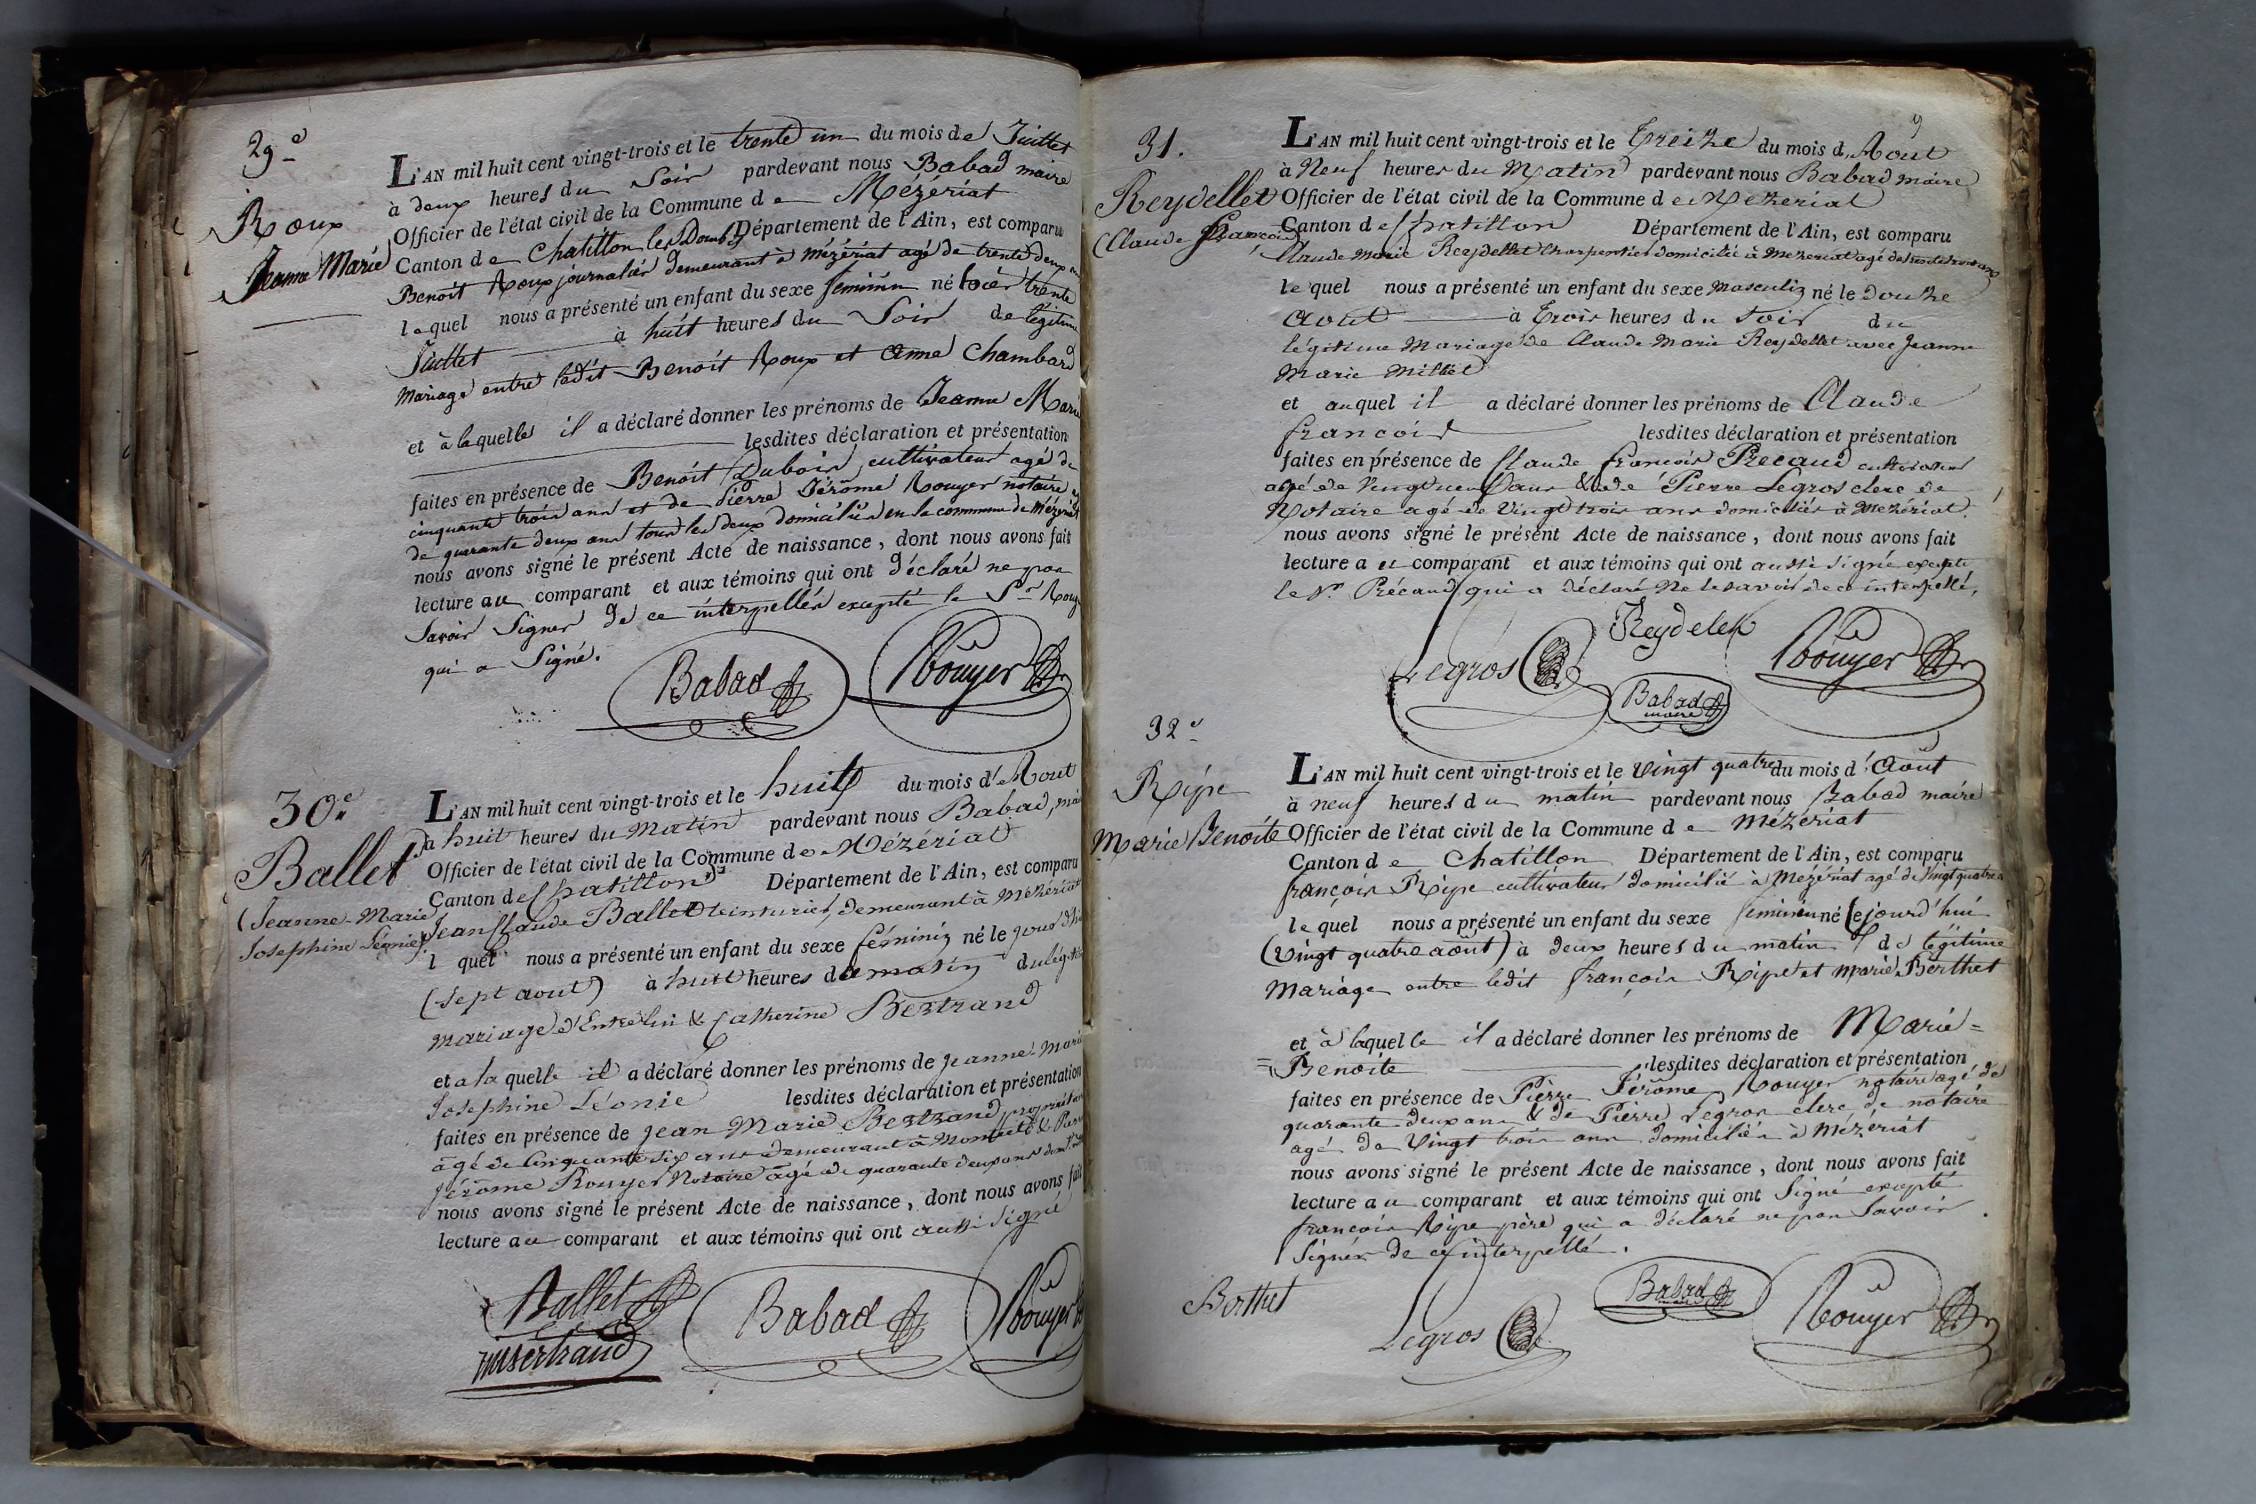 29e
Roux
Jeanne Marie
L'AN mil huit cent vingt-trois et le trente un du mois de Juillet
à deux heures du Soir pardevant nous Babad maire
Officier de l'état civil de la Commune de Mézériat
Canton de Chatillon les Dombes Département de l'Ain, est comparu
Benoit Roux journalier demeurant à mézériat agé de trente deux
lequel nous a présenté un enfant du sexe feminin né hier trente
Juillet à huit heures du Soir de légitime
Mariage entre ledit Benoit Roux et Anne Chambard
et à laquelle il a déclaré donner les prénoms de Jeanne Marie
lesdites déclaration et présentation
faites en présence de Benoit Dubois, cultivateur agé de
cinquante trois ans et de Pierre Jérôme Rouyer notaire
de quarante deux ans tous les deux domiciliés en la commune de Mézériat
nous avons signé le présent Acte de naissance, dont nous avons fait
lecture au comparant et aux témoins qui ont déclaré ne pas
Savoir Signer de ce interpellés excepté le Sr Rouyer
qui a Signé.
Babad Rouyer
30e
Ballet
(Jeanne-Marie
Josephine Léonie)
L'AN mil huit cent vingt-trois et le huit du mois d'Aout
à huit heures du Matin pardevant nous Babad, maire
Officier de l'état civil de la Commune de Mézériat
Canton de Chatillon Département de l'Ain, est comparu
Jean Claude Ballet teinturier, demeurant à Mézériat
l quel nous a présenté un enfant du sexe féminin né le jour d'hier
(sept aout) à huit heures du matin du légitime
mariage d'Entre lui & Catherine Bertrand
et a la quelle il a déclaré donner les prénoms de Jeanne-Marie
Josephine Léonie lesdites déclaration et présentation
faites en présence de Jean Marie Bertrand, propriétaire
âgé de Cinquante six ans demeurant à &
Jérôme Rouyer Notaire âgé de quarante deux ans
nous avons signé le présent Acte de naissance, dont nous avons fait
lecture au comparant et aux témoins qui ont aussi signé
Ballet Babad Rouyer
Bertrand
31.
Reydellet
(Claude François)
L'AN mil huit cent vingt-trois et le Treize du mois d'Aout
à Neuf heures du Matin pardevant nous Babad maire
Officier de l'état civil de la Commune de Mezeriat
Canton de Chatillon Département de l'Ain, est comparu
Claude Marie Reydellet Charpentier domicilié à Mezeriat agé de ans
le quel nous a présenté un enfant du sexe masculin né le Douze
Aout à Trois heures du Soir du
légitime Mariage de Claude Marie Reydellet avec Jeanne
Marie Millet
et auquel il a déclaré donner les prénoms de Claude
françois lesdites déclaration et présentation
faites en présence de Claude françois Précaud cultivateur
agé de vingt neuf ans & de Pierre Legros clerc de
Notaire agé de Vingt trois ans domiciliés à Mézériat.
nous avons signé le présent Acte de naissance, dont nous avons fait
lecture a u comparant et aux témoins qui ont aussi signé excepté
le Sr Précaud qui a déclaré Ne le savoir de ce interpellé,
Reydelet
Legros Babad maire Rouyer
32e
Ripe
Marie Benoite
L'AN mil huit cent vingt-trois et le Vingt quatre du mois d'Août
à neuf heures du matin pardevant nous Babad maire
Officier de l'état civil de la Commune de Mézériat
Canton de Chatillon Département de l'Ain, est comparu
françois Ripe cultivateur domicilié à Mézériat agé de vingt quatre
le quel nous a présenté un enfant du sexe feminin né cejourd'hui
(Vingt quatre août) à deux heures du matin de légitime
Mariage entre ledit françois Ripe et Marie Berthet
et à laquelle il a déclaré donner les prénoms de Marie=
=Benoite lesdites déclaration et présentation
faites en présence de Pierre Jérôme Rouyer notaire agé de
quarante deux ans & de Pierre Legros clerc de notaire
agé de Vingt trois ans domiciliés à Mézériat
nous avons signé le présent Acte de naissance, dont nous avons fait
lecture a u comparant et aux témoins qui ont Signé excepté
françois Ripe père qui a déclaré ne pas Savoir
Signer de ce interpellé.
Berthet
Legros Babad maire Rouyer